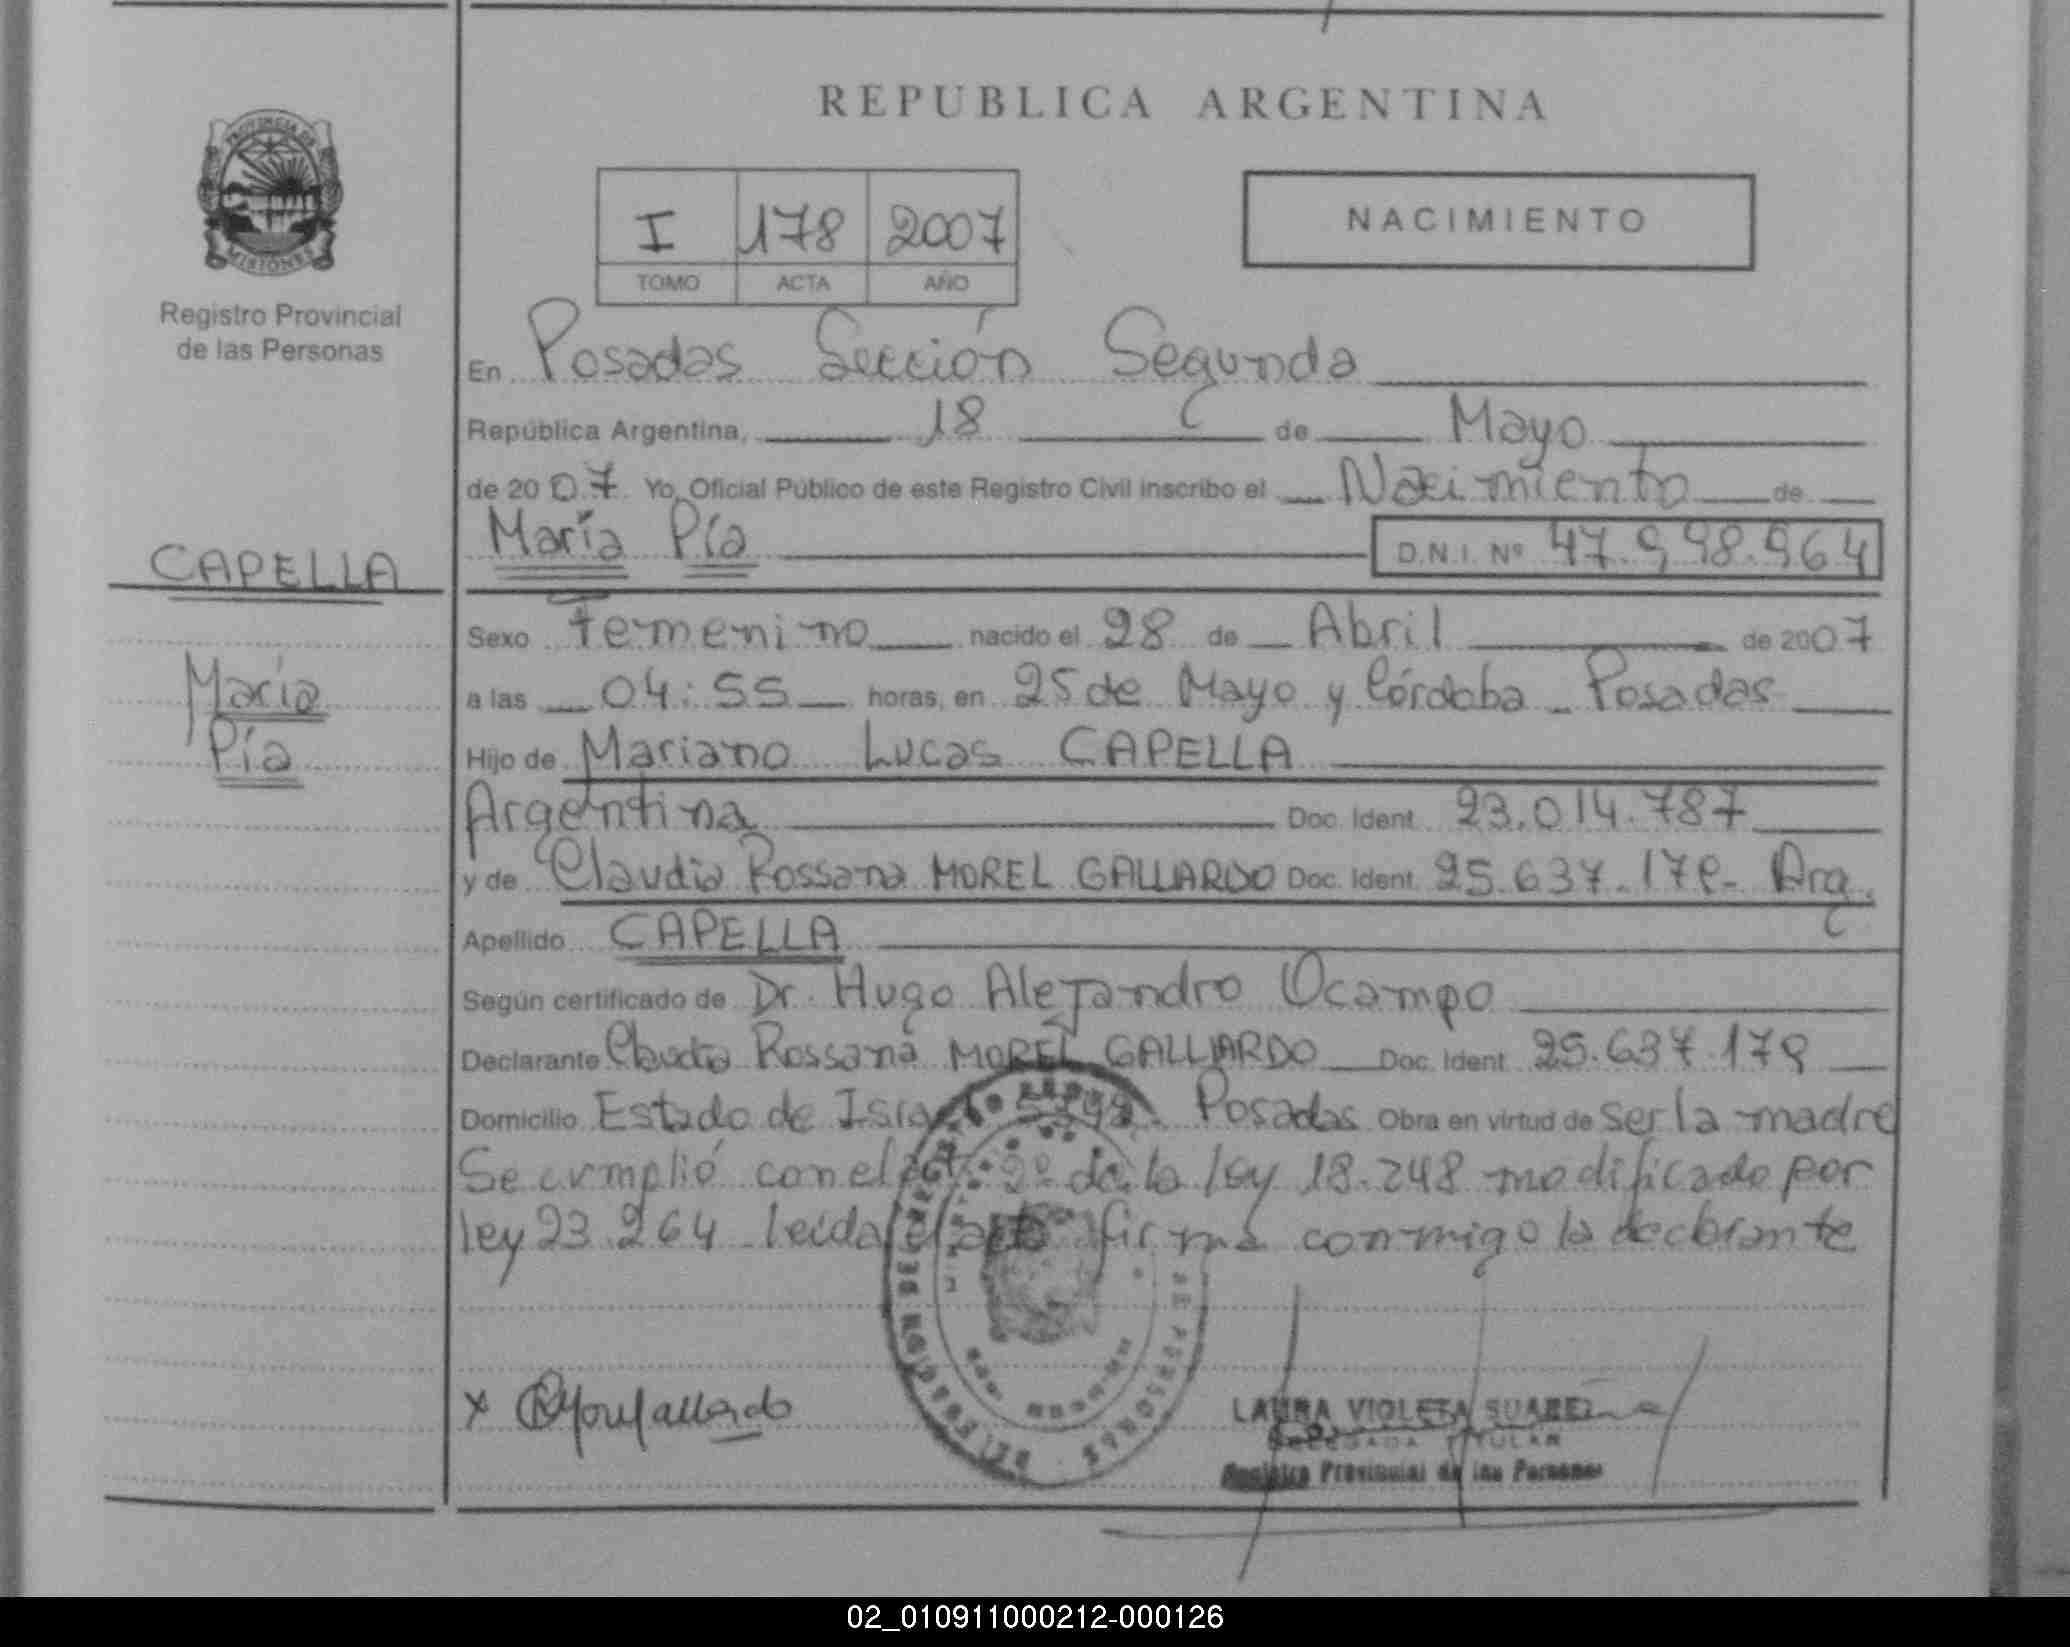 REPUBLICA ARGENTINA
PROVINCIA DE
MISIONES
Registro Provincial
de las Personas
I 178 2007
TOMO ACTA AÑO
NACIMIENTO
En Posadas Sección Segunda
República Argentina, 18 de Mayo
de 2007. Yo, Oficial Público de este Registro Civil inscribo el Nacimiento de
María Pía D.N.I. Nº 47.998.964
CAPELLA
María
Pía
Sexo Femenino nacido el 28 de Abril de 2007
a las 04:55 horas, en 25 de Mayo y Córdoba - Posadas
Hijo de Mariano Lucas CAPELLA
Argentina Doc. Ident. 23.014.787
y de Claudia Rossana MOREL GALLARDO Doc. Ident. 25.637.179- Arg.
Apellido CAPELLA
Según certificado de Dr. Hugo Alejandro Ocampo
Declarante Claudia Rossana MOREL GALLARDO Doc. Ident. 25.637.179
Domicilio Estado de Israel Posadas Obra en virtud de ser la madre
Se cumplió con el art. 2º de la ley 18.248 modificado por
ley 23.264 leida el acta firma conmigo la declarante
x
LAURA VIOLETA SUAREZ
DELEGADA TITULAR
Registro Provincial de las Personas
02_010911000212-000126